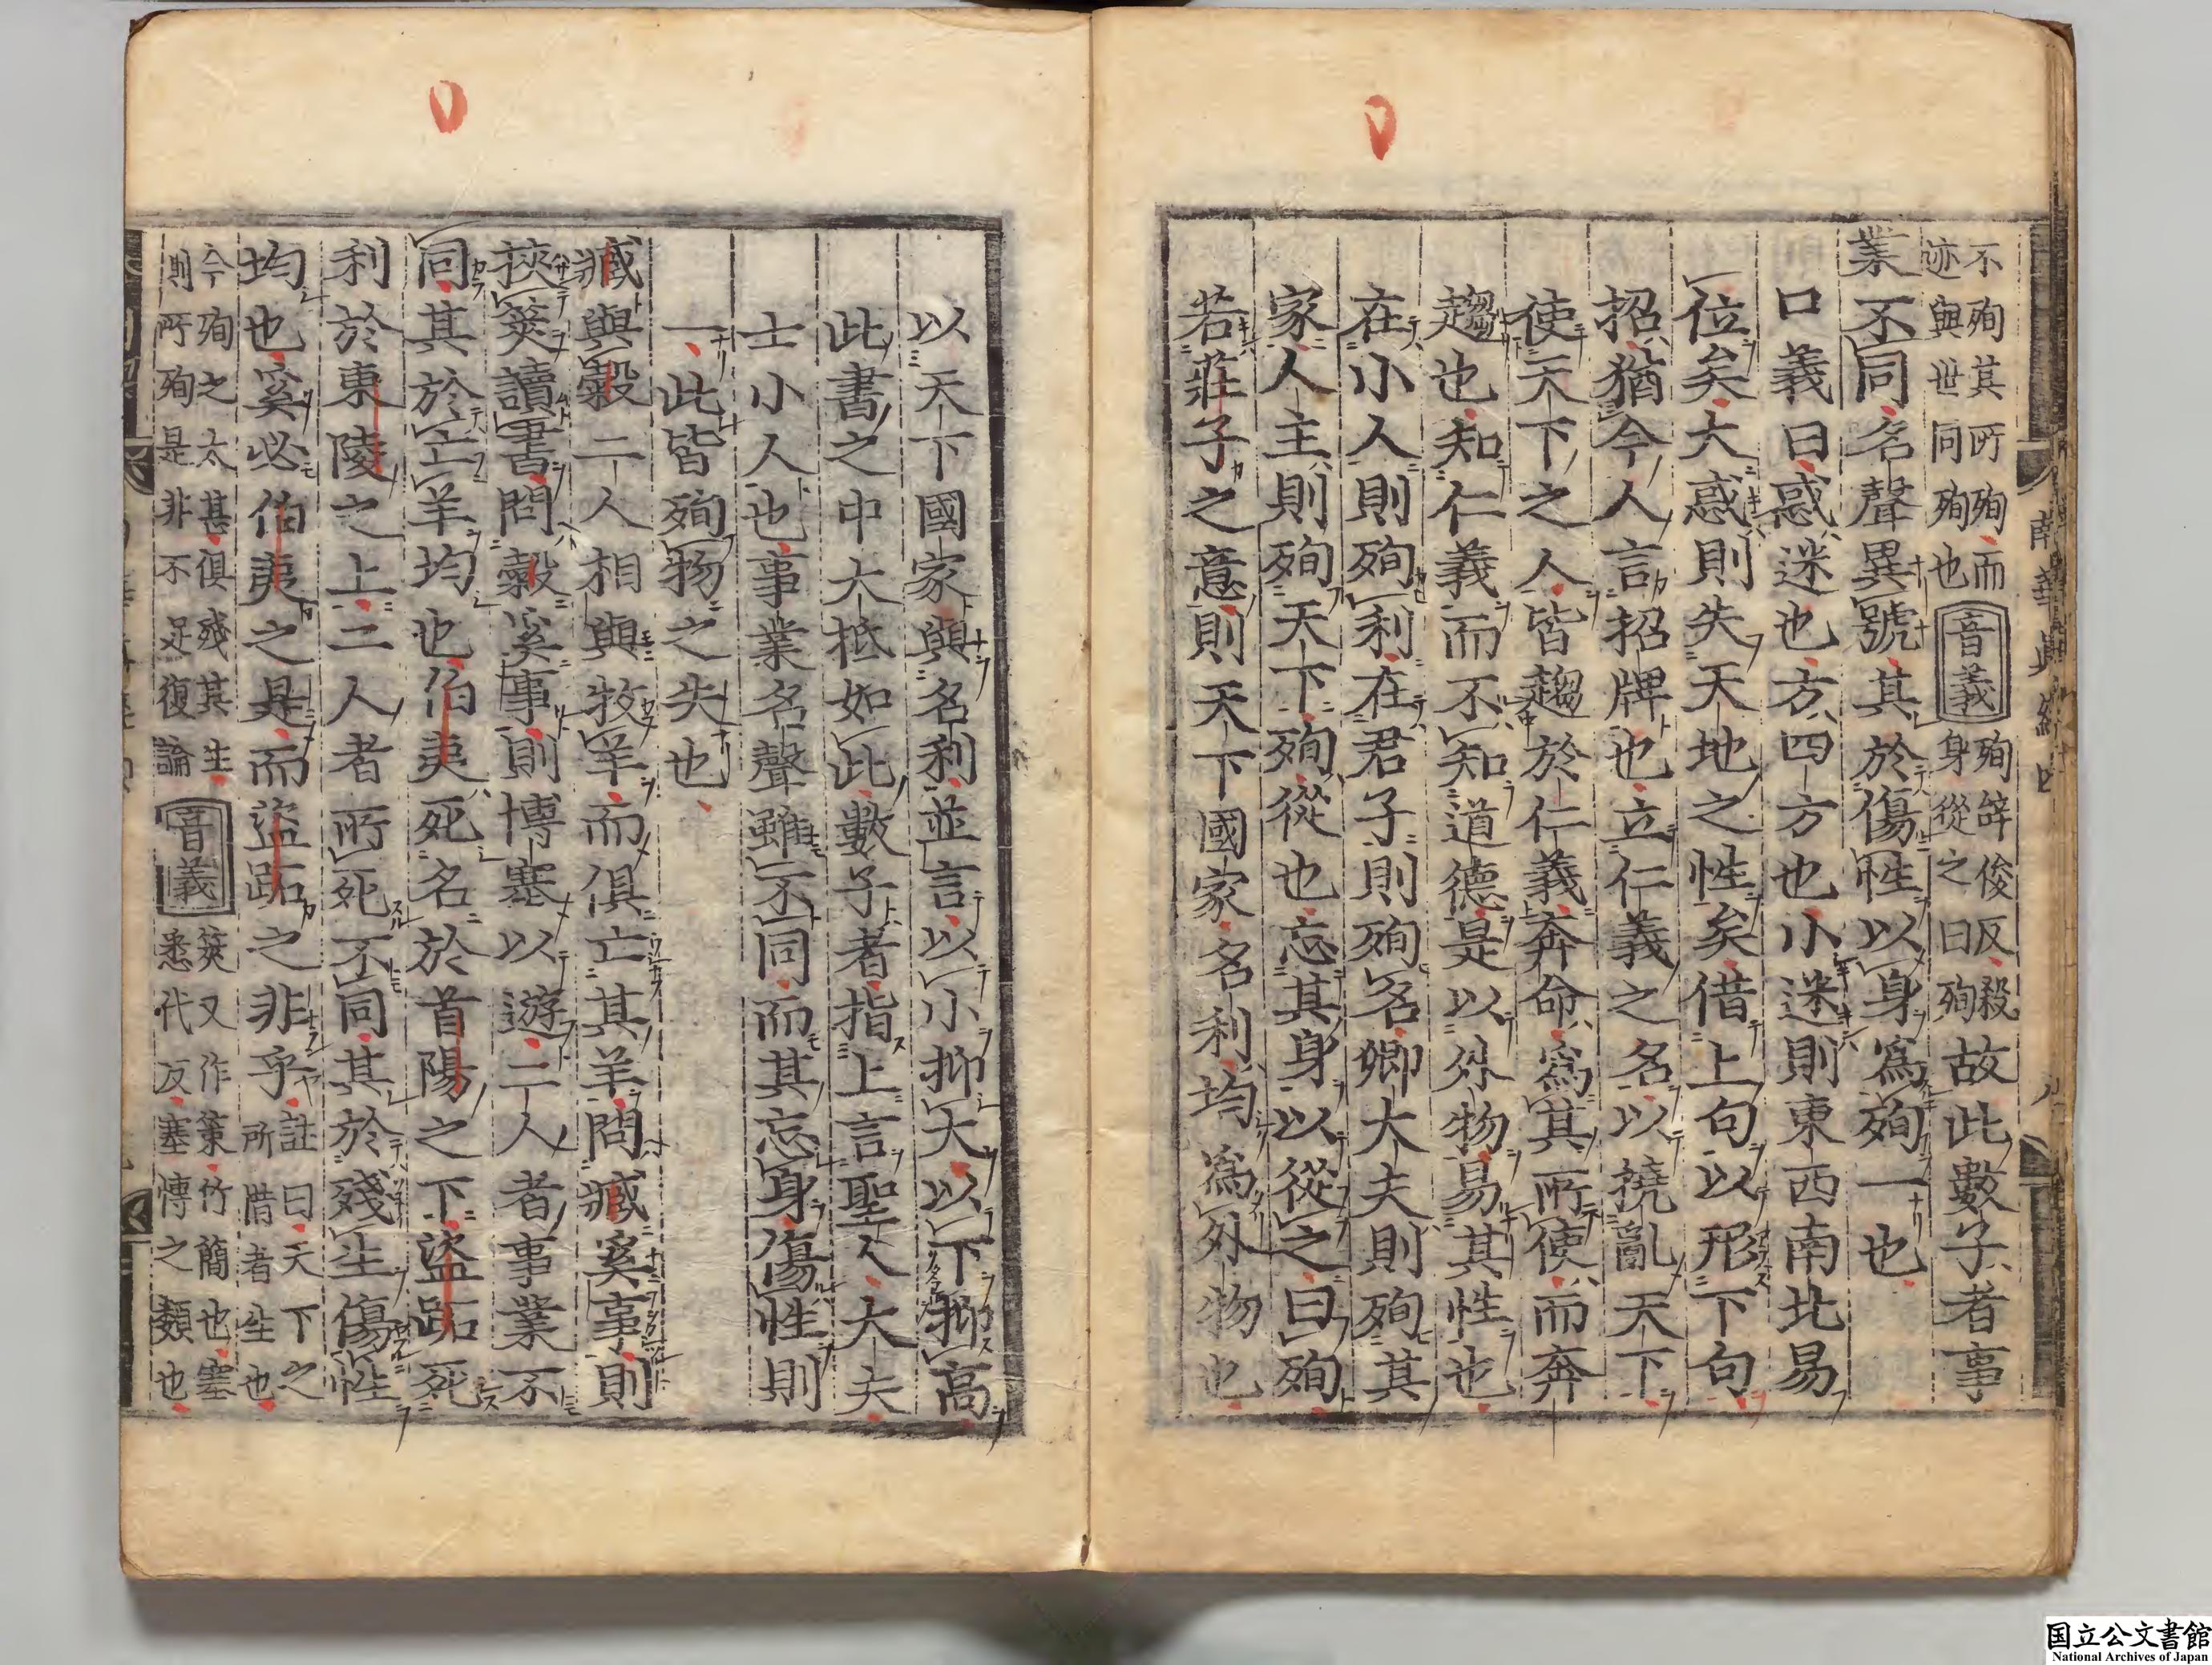 南華真經四
不殉其所殉而
迹與世同殉也
音義
殉辞俊反殺
身從之曰殉
故此數子者事
業不同名聲異號其於傷性以身爲殉一也
口義曰惑迷也方四方也小迷則東西南北易
位矣大惑則失天地之性矣借上句以形下句
招猶今人言招牌也立仁義之名以撓亂天下
使天下之人皆趨於仁義奔命爲其所使而奔
趨也知仁義而不知道德是以外物易其性也
在小人則殉利在君子則殉名卿大夫則殉其
家人主則殉天下殉從也忘其身以從之曰殉
若莊子之意則天下國家名利均爲外物也
以天下國家與名利並言以小抑大以下抑高
此書之中大抵如此數子者指上言聖人大夫
士小人也事業名聲雖不同而其忘身傷性則
一此皆殉物之失也
臧與穀二人相與牧羊而俱亡其羊問臧奚事則
挾筴讀書問穀奚事則博塞以遊二人者事業不
同其於亡羊均也伯夷死名於首陽之下盜跖死
利於東陵之上二人者所死不同其於殘生傷性
均也奚必伯夷之是而盜跖之非乎
註曰天下之
所惜者生也
今殉之太甚俱殘其生
則所殉是非不足復論
音義
筴又作策竹簡也塞
悉代反塞博之類也
国立公文書館
National Archives of Japan